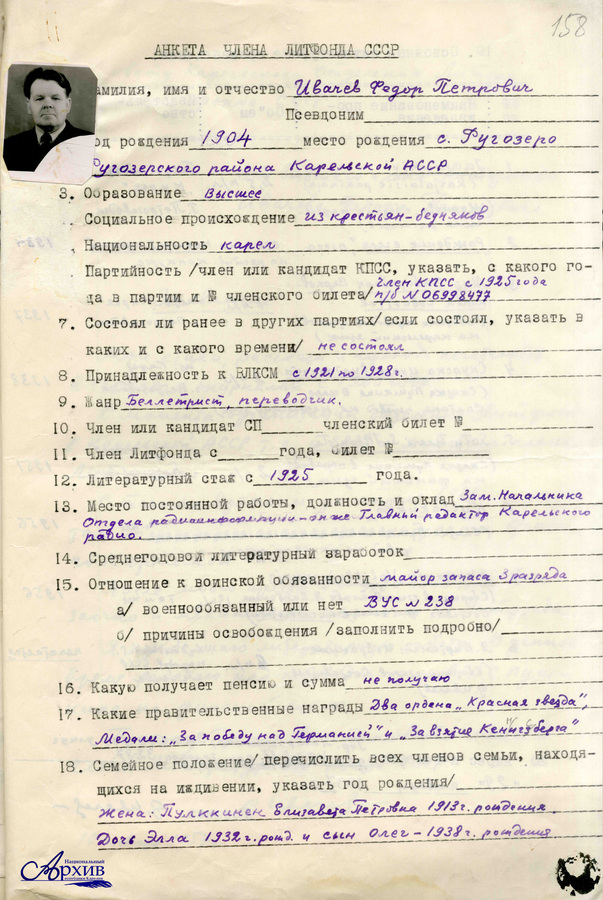 158
АНКЕТА ЧЛЕНА ЛИТФОНДА СССР
амилия, имя и отчество Ивачев Федор Петрович
Псевдоним
од рождения 1904 место рождения с. Ругозеро
Ругозерского района Карельской АССР
3. Образование Высшее
Социальное происхождение из крестьян-бедняков
Национальность карел
Партийность /член или кандидат КПСС, указать, с какого го-
член КПСС с 1925 года
да в партии и № членского билета/ п/б N 06998477
7. Состоял ли ранее в других партиях/если состоял, указать в
каких и с какого времени/ не состоял
8. Принадлежность к ВЛКСМ с 1921 по 1928 г.
9. Жанр Беллетрист, переводчик.
10. Член или кандидат СП членский билет №
11. Член Литфонда с года, билет №
12. Литературный стаж с 1925 года.
13. Место постоянной работы, должность и оклад Зам. Начальника
Отдела радиоинформации-он же Главный редактор Карельского
радио.
14. Среднегодовой литературный заработок
15. Отношение к воинской обязанности майор запаса 3 разряда
а/ военнообязанный или нет ВУС N 238
б/ причины освобождения /заполнить подробно/
16. Какую получает пенсию и сумма не получаю
17. Какие правительственные награды Два ордена „Красная звезда",
Медали: „За победу над Германией" и „За взятие Кенигсберга"
18. Семейное положение/ перечислить всех членов семьи, находя-
щихся на иждивении, указать год рождения/
Жена: Пулккинен Елизавета Петровна 1913 г. рождения
Дочь Элла 1932 г. рожд. и сын Олег-1938 г. рождения
Национальный
Архив
республики Карелия